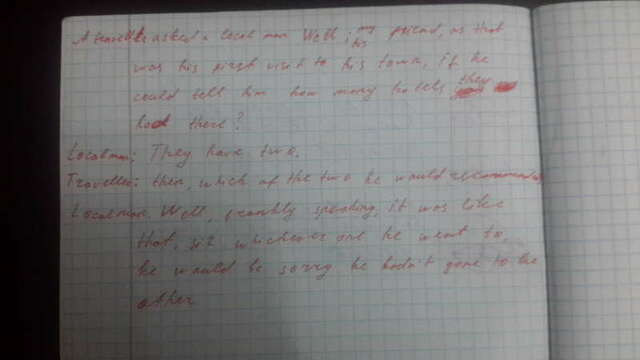 A traveller asked a local man Well, my his friend, as that
was his first visit to his town, if he
could tell him how many hotels they
had there?
Local man: They have two.
Traveller: then, which of the two he would recommended
Local man. Well, frankly speaking, it was like
that, sir whichever one he went to,
he would be sorry he hadn't gone to the
other